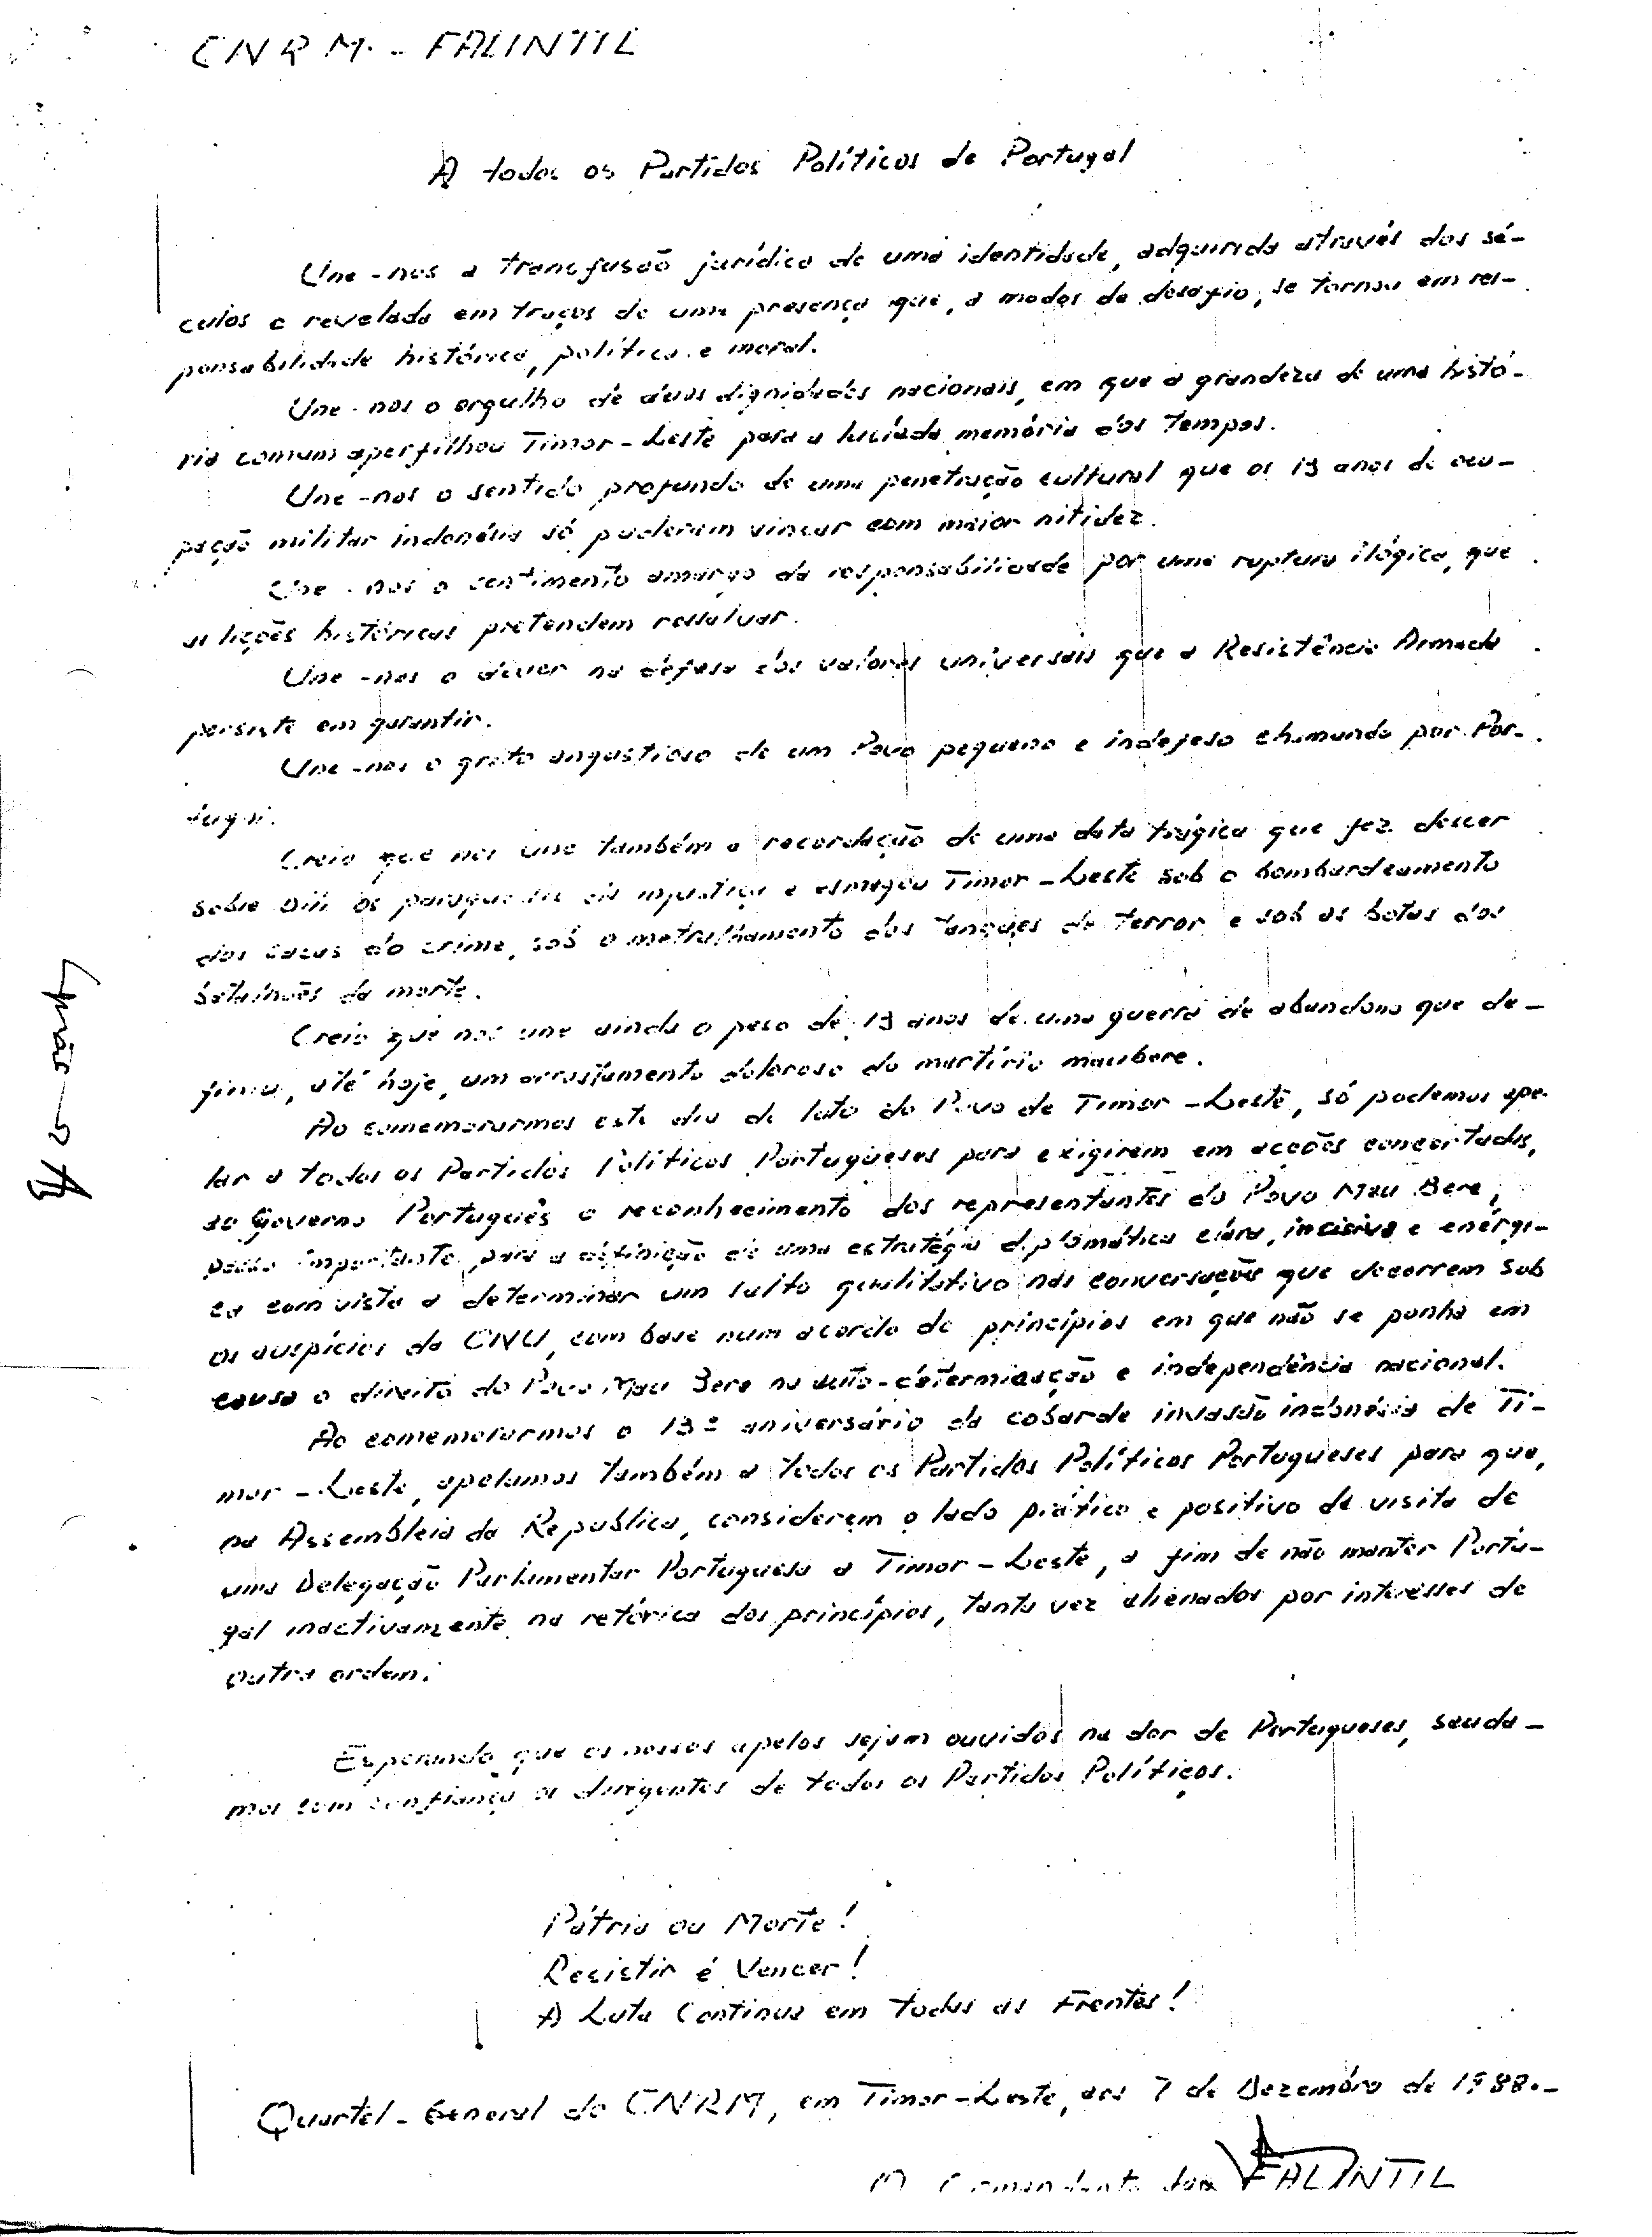 CNRM. - FALINTIL
A todos os Partidos Políticos de Portugal
Une-nos a transfusão jurídica de uma identidade, adquirida através dos sé-
culos e revelada em traços de uma presença que, a modos de desafio, se tornou em res-
ponsabilidade histórica, política e moral.
Une-nos o orgulho de duas dignidades nacionais, em que a grandeza de uma histó-
ria comum aperfilhou Timor-Leste para a lusíada memória dos tempos.
Une-nos o sentido profundo de uma penetração cultural que os 13 anos de ocu-
pação militar indonésia só puderam vincar com maior nitidez.
Une-nos o sentimento amargo da responsabilidade por uma ruptura ilógica, que
as lições históricas pretendem ressalvar.
Une-nos o dever na defesa dos valores universais que a Resistência Armada
persiste em garantir.
Une-nos o grito angustioso de um Povo pequeno e indefeso chamando por Por-
tugal.
Creio que nos une também a recordação de uma data trágica que fez descer
sobre Dili os paraquedas da injustiça e esmagou Timor-Leste sob o bombardeamento
dos do crime, sob o metralhamento dos tanques de terror e sob as botas dos
batalhões da morte.
Creio que nos une ainda o peso de 13 anos de uma guerra de abandono que de-
finiu, até hoje, um arrastamento doloroso do martírio maubere.
Ao comemorarmos este dia de luto do Povo de Timor-Leste, só podemos ape-
lar a todos os Partidos Políticos Portugueses para exigirem em acções concertadas,
ao Governo Português o reconhecimento dos representantes do Povo Mau Bere,
passo importante para a definição de uma estratégia diplomática clara, incisiva e enérgi-
ca com vista a determinar um salto qualitativo nas conversações que decorrem sob
os auspícios da ONU, com base num acordo de princípios em que não se ponha em
causa o direito do Povo Mau Bere na auto-determinação e independência nacional.
Ao comemorarmos o 13º aniversário da cobarde invasão indonésia de Ti-
mor-Leste, apelamos também a todos os Partidos Políticos Portugueses para que,
na Assembleia da Republica, considerem o lado prático e positivo da visita de
uma Delegação Parlamentar Portuguesa a Timor-Leste, a fim de não manter Portu-
gal inactivamente na retórica dos princípios, tanta vez alienados por interesses de
outra ordem.
Esperando que os nossos apelos sejam ouvidos na dor de Portugueses, sauda-
mos com confiança os dirigentes de todos os Partidos Políticos.
Pátria ou Morte!
Resistir é Vencer!
A Luta Continua em todas as Frentes!
Quartel-General do CNRM, em Timor-Leste, aos 7 de Dezembro de 1988.-
O Comandante das FALINTIL